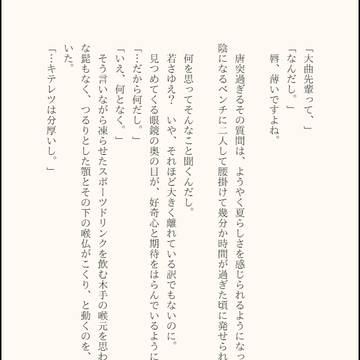 「大曲先輩って、」
「なんだし。」
唇、薄いですよね。
唐突過ぎるその質問は、ようやく夏らしさを感じられるようになっ
陰になるベンチに二人して腰掛けて幾分か時間が過ぎた頃に発せられ
何を思ってそんなこと聞くんだし。
若さゆえ？　いや、それほど大きく離れている訳でもないのに。
見つめてくる眼鏡の奥の目が、好奇心と期待をはらんでいるように
「…だから何だし。」
「いえ、何となく。」
そう言いながら凍らせたスポーツドリンクを飲む木手の喉元を思わ
な髭もなく、つるりとした顎とその下の喉仏がこくり、と動くのを、
いた。
「…キテレツは分厚いし。」